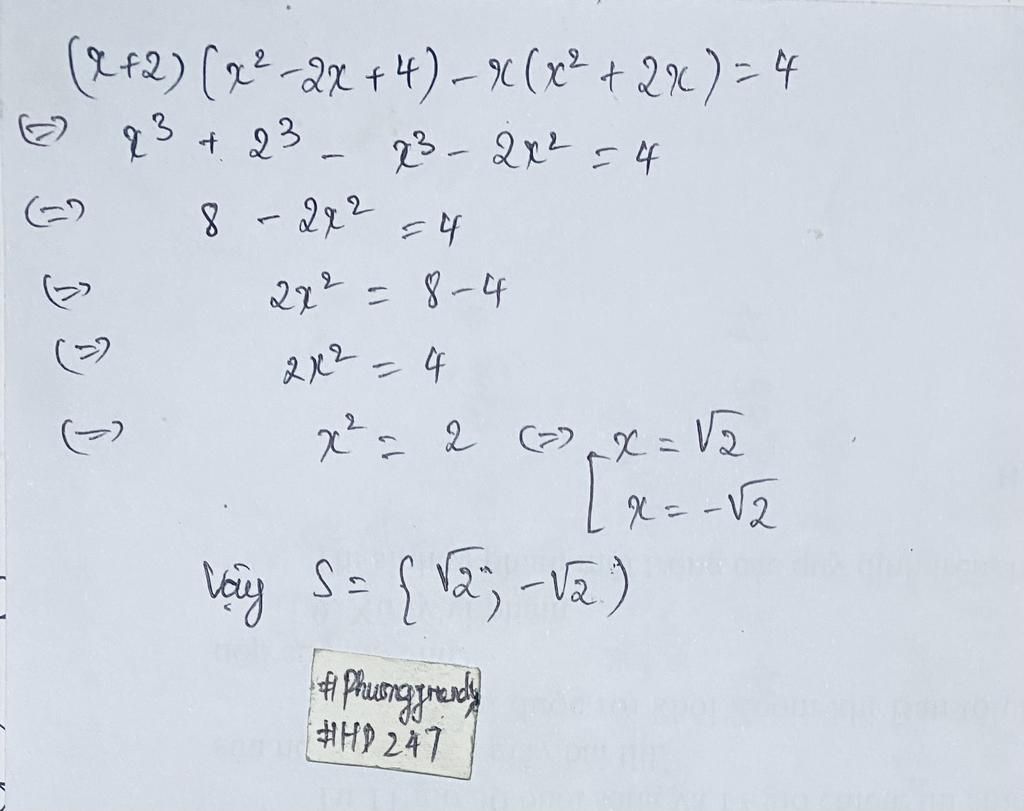 (x+2)(x² - 2x + 4) - x(x² + 2x) = 4
(=) x³ + 2³ - x³ - 2x² = 4
(=) 8 - 2x² = 4
(=) 2x² = 8 - 4
(=) 2x² = 4
(=) x² = 2 (=) [ x = √2
x = -√2
Vậy S = { √2; -√2 }
#HD 247